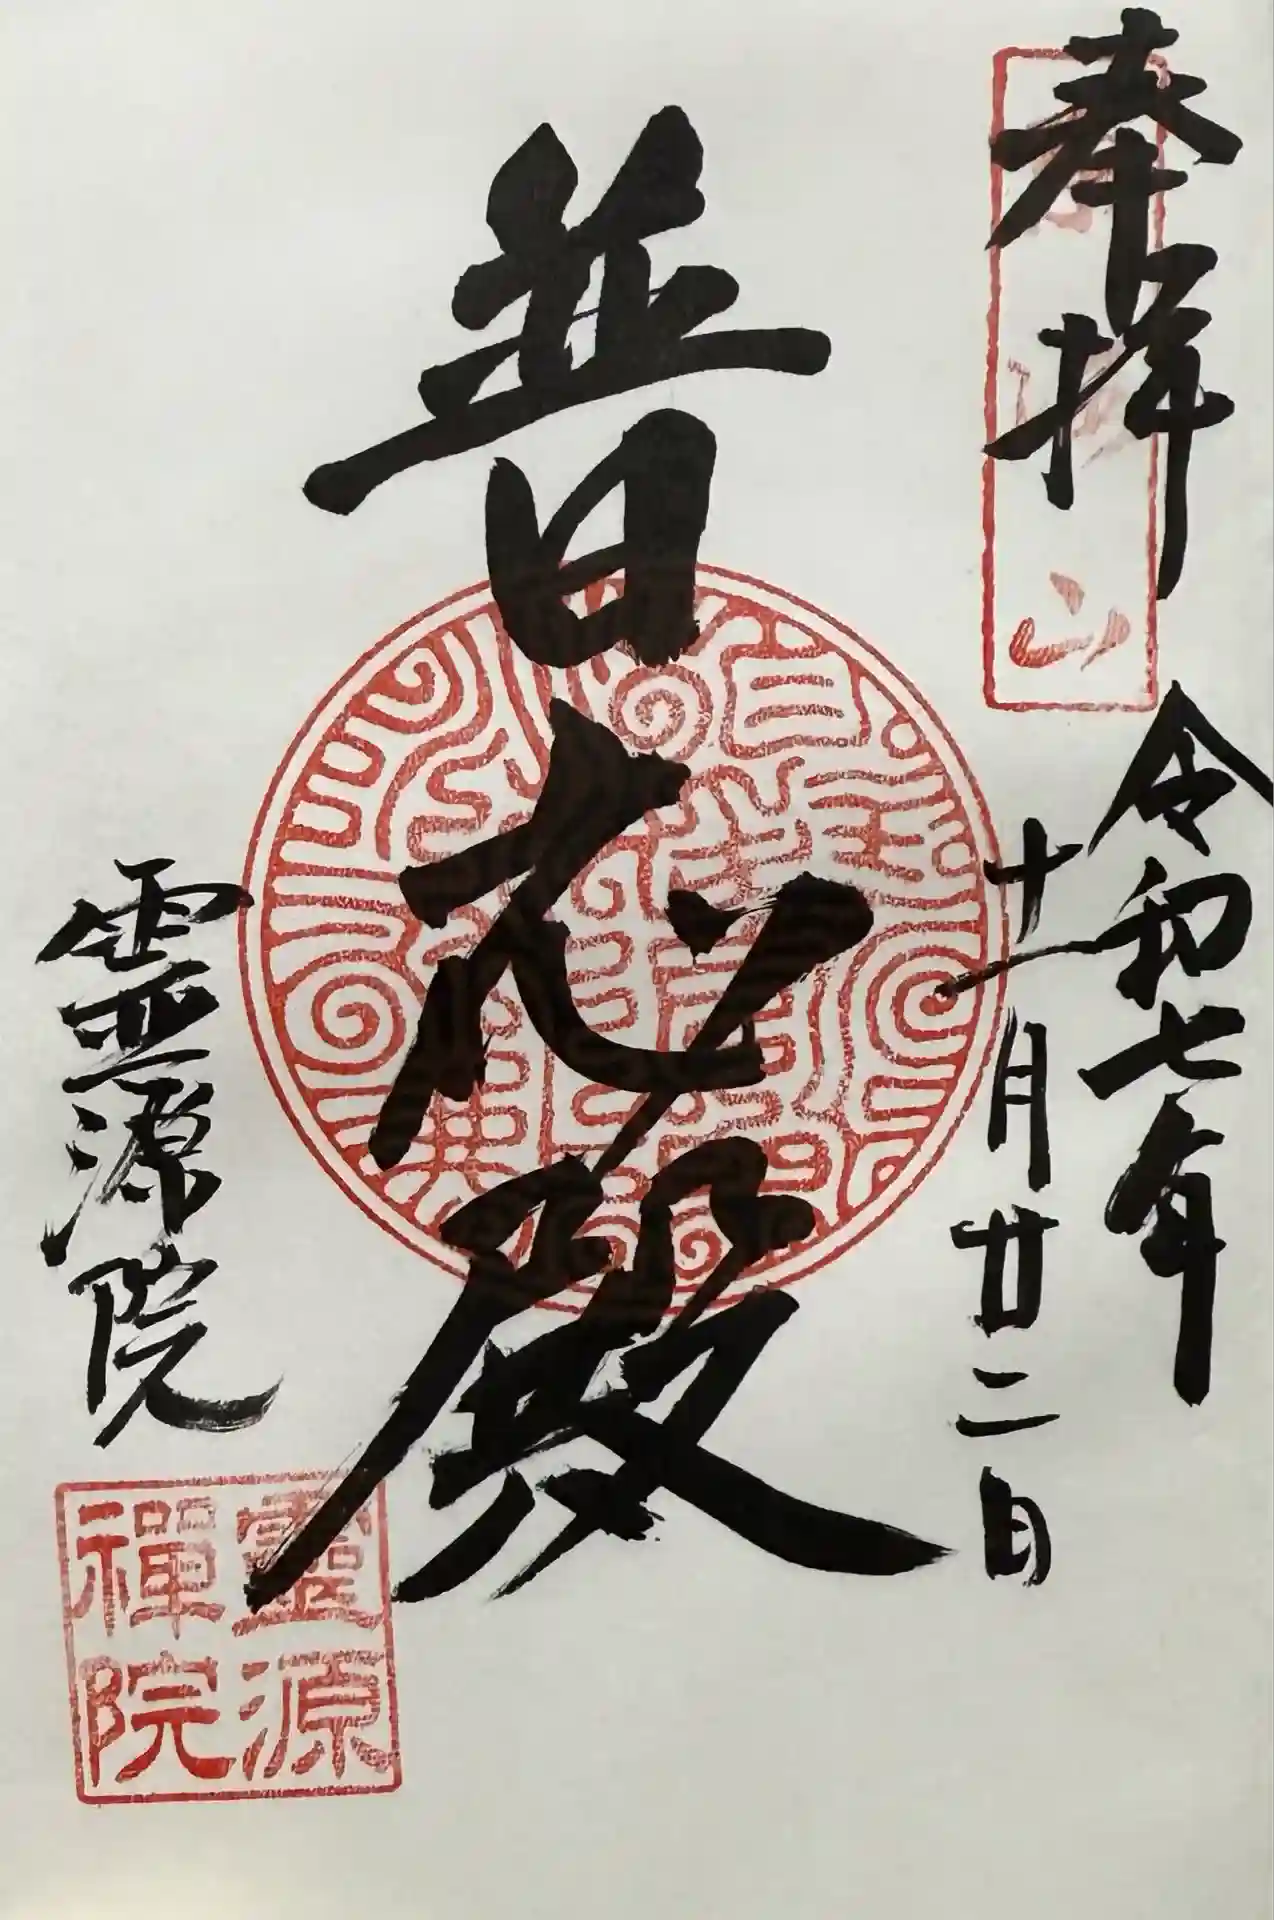 奉拝
令和七年
十一月廿二日
普応殿
霊源院
靈源
禪院
山